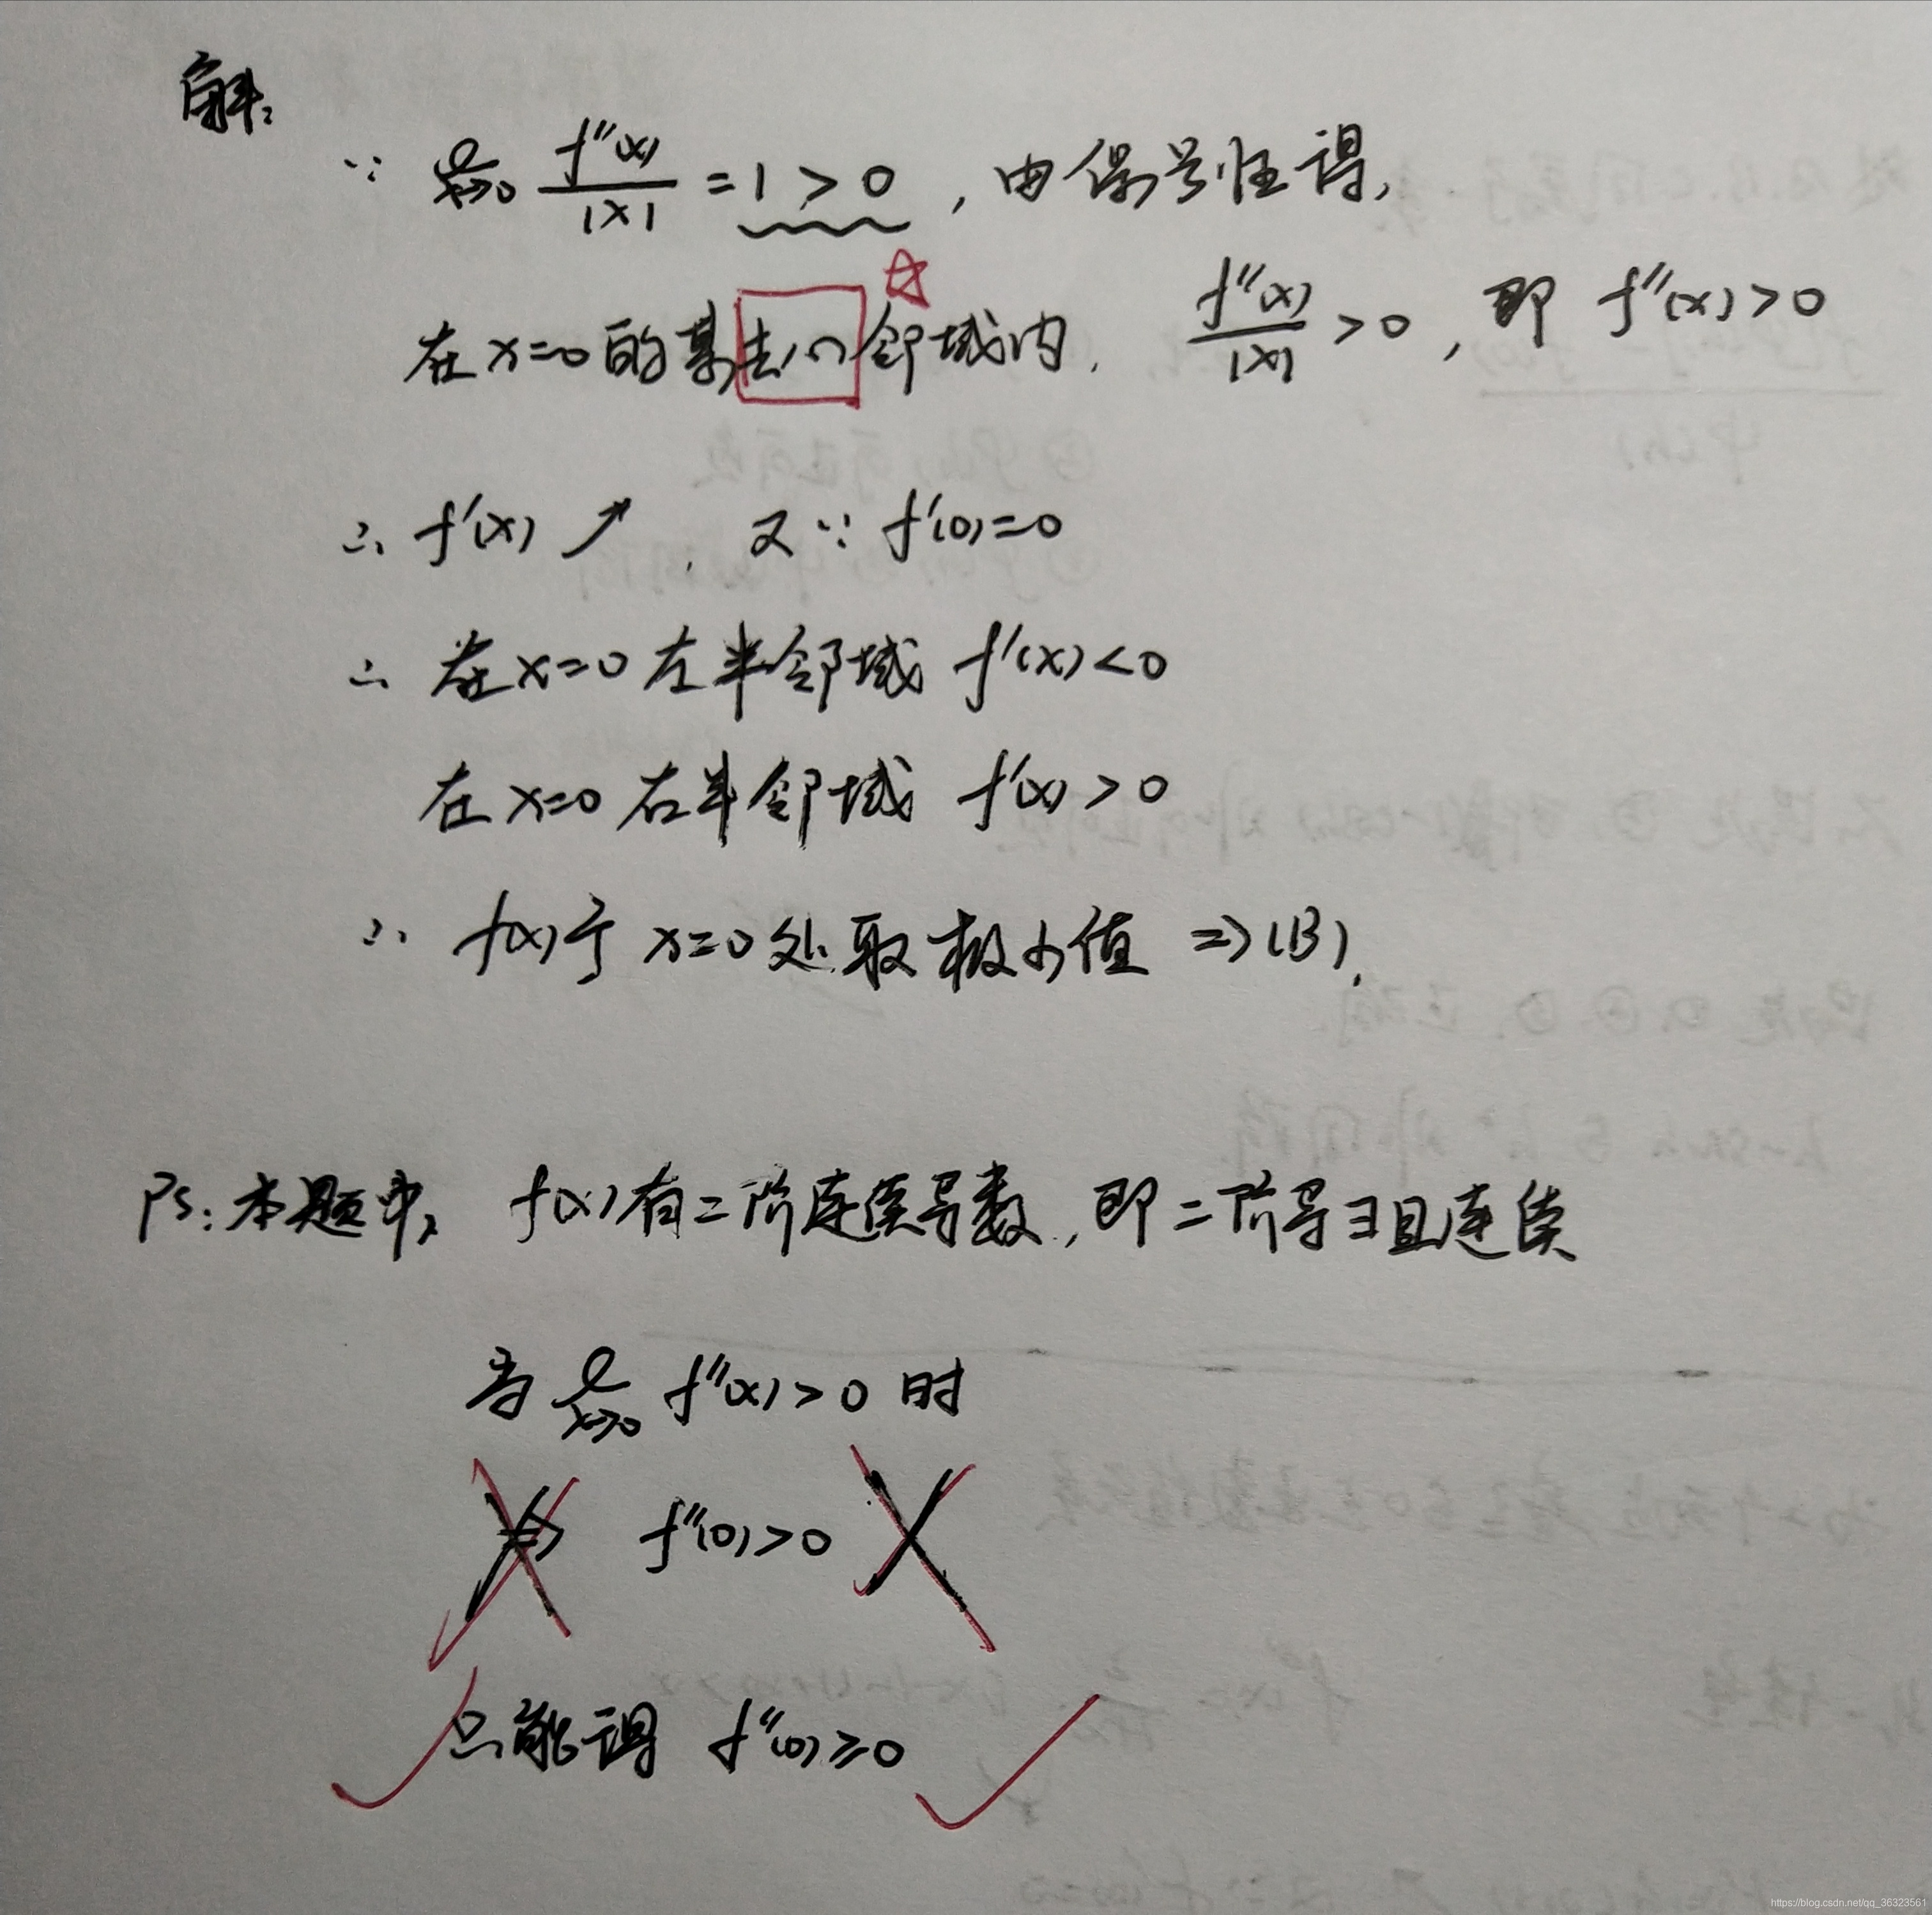 解:
∵ lim x→0 f''(x)/|x| = 1 > 0 , 由保号性得,
在x=0的某去心邻域内, f''(x)/|x| > 0 , 即 f''(x) > 0
∴ f'(x) ↗ , 又∵ f'(0)=0
∴ 在x=0左半邻域 f'(x)<0
在x=0右半邻域 f'(x)>0
∴ f(x)于 x=0处取极小值 ⇒(B).
Ps:本题中, f(x)有二阶连续导数, 即二阶导∃且连续
当 lim x→0 f''(x)>0 时
⇒ f''(0)>0
只能谓 f''(0)≥0
https://blog.csdn.net/qq_36323561